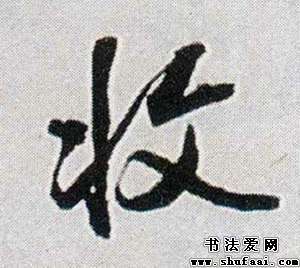 收
书法爱网
www.shufaai.com